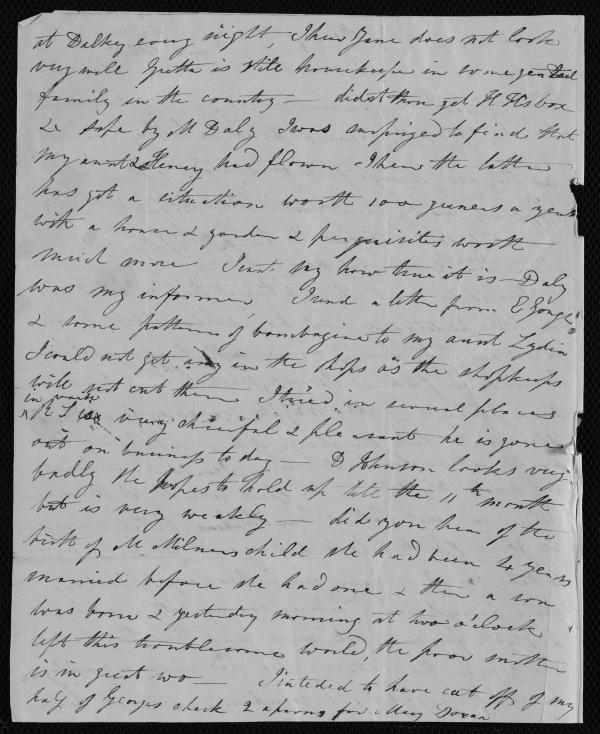 at Dalkey every night, I hear Jane does not look
very well Gretta is still housekeeper in some genteel
family in the country — didst thou get H Hs box
& safe by M Daly I was surprized to find that
my aunt & Henry had flown - I hear the latter
has got a situation worth 100 guineas a year
with a house & garden & perquisites worth
much more I cant say how true it is — Daly
was my informer I send a letter from E
& some patterns of bombazine to my aunt Lydia
I could not get any in the shops as the shopkeeps
will not cut them I tried in several places
in
R L is very chearful & pleasant he is gone
out on business to day — D Johnson looks very
badly she hopes to hold up till the 11th month
but is very weakly — did you hear of the
birth of M Milners child she had been 4 years
married before she had one & then a son
was born & yesterday morning at two o'clock
left this troublesome world, the poor mother
is in great wo — I inteded to have cut off of my
half of Georges check 2 aprons for Mary Doran